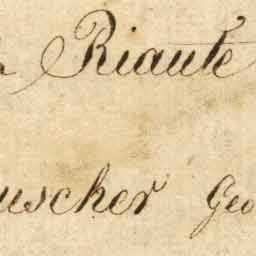 Riaute
uscher Geo